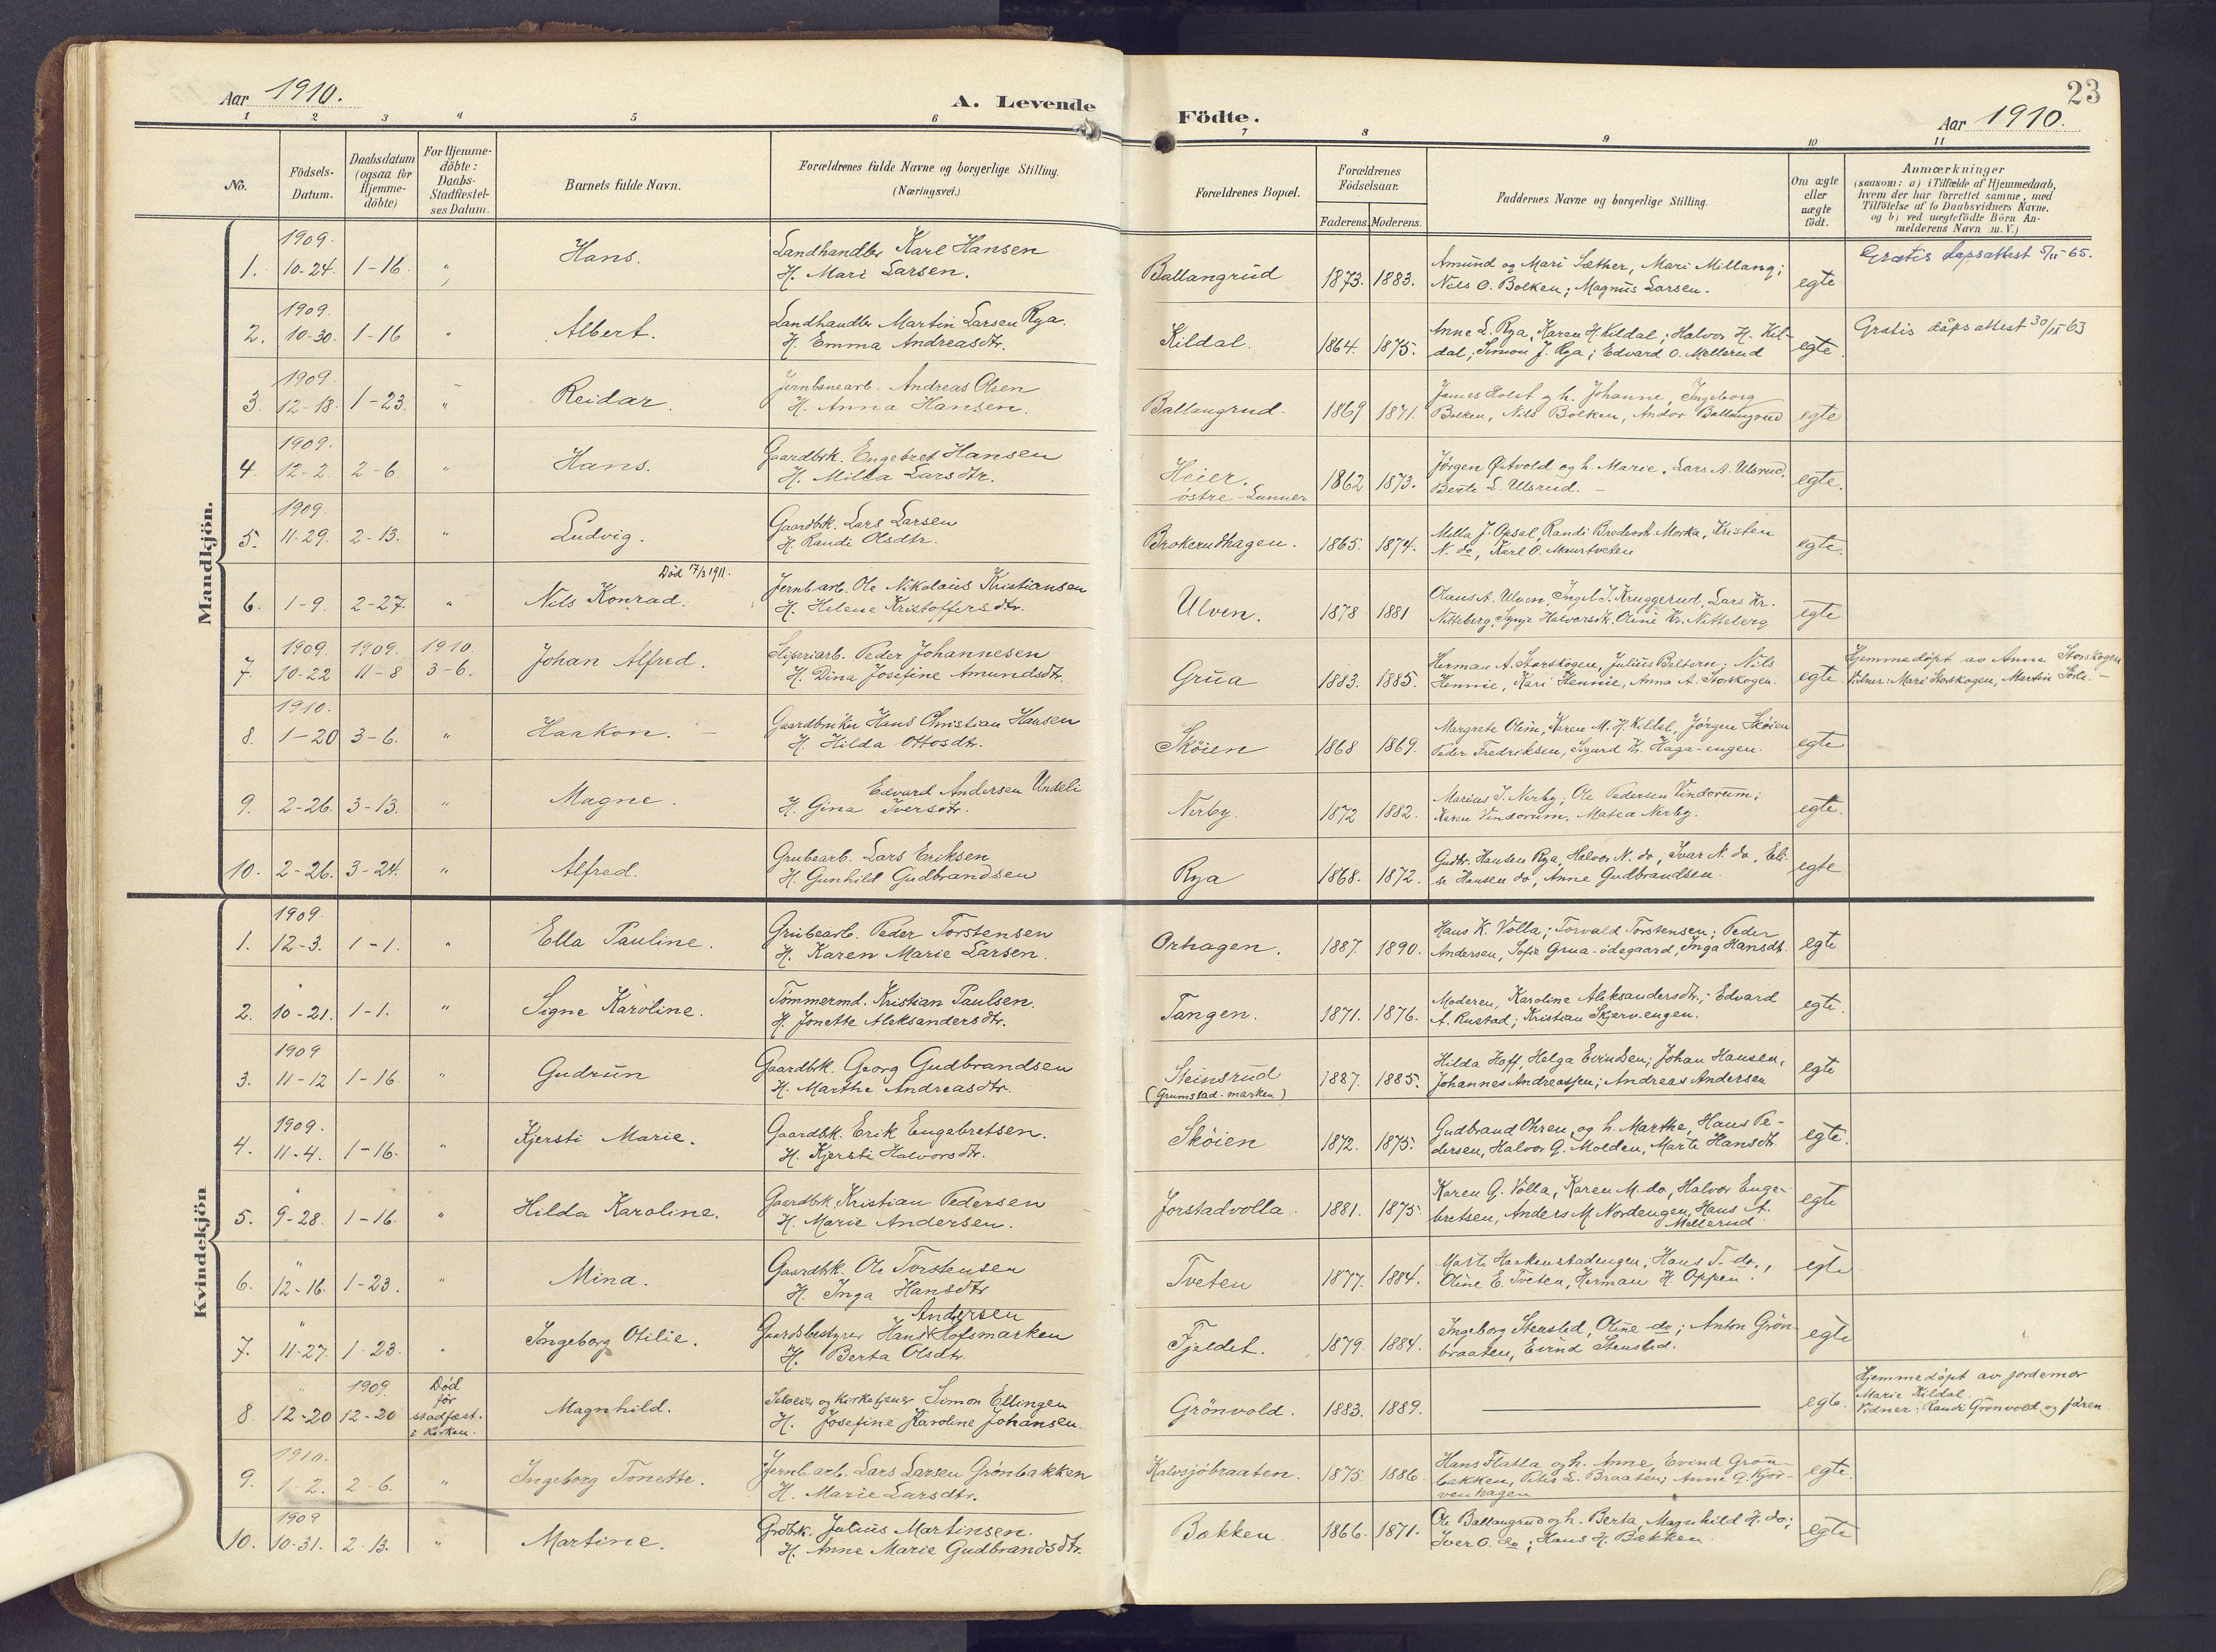 Aar 1910.
A. Levende Födte.
23
Aar 1910.
1 2 3 4 5 6 7 8 9 10 11
No.
Födsels-Datum.
Daabsdatum (ogsaa for Hjemme-döbte)
For Hjemme-döbte: Daabs-Stadfæstel-ses Datum.
Barnets fulde Navn.
Forældrenes fulde Navne og borgerlige Stilling. (Næringsvei.)
Forældrenes Bopæl.
Forældrenes Födselsaar.
Faderens. Moderens.
Faddernes Navne og borgerlige Stilling.
Om ægte eller uægte födt.
Anmærkninger
(saasom: a) i Tilfælde af Hjemmedaab,
hvem der har forrettet samme, med
Tilföielse af to Daabsvidners Navne.
og b) ved uægtefödte Börn An-
melderens Navn m. V.)
Mandkjön.
1. 1909. 10-24. 1-16. " Hans. Landhandler Karl Hansen
H. Mari Larsen. Ballangrud 1873. 1883. Amund og Mari Sæther, Mari Millang;
Nils O. Bolken; Magnus Larsen. egte Gratis dapsattest 5/11-65.
2. 1909. 10-30. 1-16 " Albert. Landhandler Martin Larsen Rya.
H. Emma Andreasdtr. Kildal. 1864. 1875. Anne L. Rya, Karen H. Kildal; Halvor H. Kil-
dal; Simon J. Rya; Edvard O. Mellerud egte. Gratis dåpsattest 30/11 63
3. 1909. 12-18. 1-23. " Reidar. Jernbanearb. Andreas Olsen
H. Anna Hansen. Ballangrud. 1869 1871. James Holst og h. Johanne, Ingeborg
Bolken, Nils Bolken, Andor Ballangrud egte
4. 1909. 12-2. 2-6. " Hans. Gaardbrk. Engebret Hansen
H. Milla Larsdtr. Heier. östre-Lunner 1862 1873. Jörgen Østvold og h. Marie. Lars A. Ulsrud,
Berte L. Ulsrud. egte.
5. 1909. 11-29. 2-13. " Ludvig. Gaardbk. Lars Larsen
H. Randi Olsdtr. Brokerudhagen. 1865. 1874. Milla J. Opsal, Randi Morka, Kristen
N. do, Karl O. egte.
6. 1-9. 2-27. " Nils Konrad. Död 17/3 1911. Jernb.arb. Ole Nikolaus Kristiansen
H. Helene Kristoffersdtr. Ulven. 1878 1881 Olaus A. Ulven, Ingeb. J. Kruggerud, Lars Kr.
Nitteberg, Halvorsdtr. Oline Kr. Nitteberg egte
7. 1909. 10-22 1909. 11-8 1910. 3-6. Johan Alfred. Sliperiarb. Peder Johannesen
H. Dina Josefine Amundsdtr. Grua 1883. 1885. Herman A. Storskogen, Julius Beltern; Nils
Hennie, Kari Hennie, Anna A. Storskogen. egte. Hjemmedöpt av Anna Storskogen
Vidner: Mari Storskogen, Martin
8. 1910. 1-20 3-6. " Haakon. Gaardbruker Hans Christian Hansen
H. Hilda Ottosdtr. Sköien 1868 1869. Margrete Olim, Karen M. H. Kildal, Jörgen Sköien
Peder Fredriksen, Sigurd Kr. Haga-engen. egte
9. 2-26. 3-13. " Magne. Edvard Andersen Undeli
H. Gina Iversdtr. Nerby. 1872 1882. Marius J. Nerby; Ole Pedersen Vindorum;
Karen Vindorum, Matea Nerby. egte.
10. 2-26. 3-24. " Alfred. Grubearb. Lars Eriksen
H. Gunhild Gudbrandsen Rya 1868. 1872. Gudbr. Hansen Rya, Halvor N. do, Ivar N. do, Eli-
se Hansen do, Anne Gudbrandsen. egte
Kvindekjön
1. 1909. 12-3. 1-1. " Ella Pauline. Grubearb. Peder Torstensen
H. Karen Marie Larsen. Orhagen. 1887. 1890. Hans K. Volla; Torvald Torstensen; Peder
Andersen, Sofie Grua-ödegaard, Inga Hansdtr. egte
2. " 10-21. 1-1. " Signe Karoline. Tömmermd. Kristian Paulsen.
H. Jonette Aleksandersdtr. Tangen. 1871. 1876. Moderen, Karoline Aleksandersdtr.; Edvard
A. Rustad; Kristian Skjerv.engen. egte.
3. 1909 11-12 1-16 " Gudrun Gaardbk. Georg Gudbrandsen
H. Marthe Andreasdtr. Steinsrud (Grumstad-marken) 1887. 1885. Hilda Hoff, Helga Evindsen; Johan Hansen,
Johannes Andreassen; Andreas Andersen egte
4. 1909. 11-4. 1-16. " Kjersti Marie. Gaardbk. Erik Engebretsen.
H. Kjersti Halvorsdtr. Sköien 1872. 1875. Gudbrand Ohren, og h. Marthe, Hans Pe-
dersen, Halvor G. Molden, Marte Hansdtr. egte.
5. " 9-28. 1-16. " Hilda Karoline. Gaardbrk. Kristian Pedersen
H. Marie Andersen. Jorstadvolla. 1881. 1875 Karen G. Volla, Karen M. do, Halvor Enge-
bretsen, Anders M. Nordengen, Hans A.
Mellerud egte
6. " 12-16. 1-23. " Mina. Gaardbk. Ole Torstensen
H. Inga Hansdtr Tveten 1877. 1884. Marte Haakenstadengen, Hans T. do.,
Oline E. Tveten, Herman H. Oppen. egte
7. " 11-27. 1-23. " Ingeborg Otilie. Gaardsbestyrer Hans Andersen Hofsmarken
H. Berta Olsdtr. Fjeldet. 1879. 1884. Ingeborg Stensled, Oline do; Anton Grön-
braaten, Eivind Stensled. egte
8. " 12-20 1909. 12-20 Död för stadfæst. i Kirken. Magnhild. Selveier og kirketjener Simon Ellingen
H. Josefine Karoline Johansen. Grönvold. 1883. 1889. egte. Hjemmedöpt av jordemor
Marie Kildal.
Vidner: Randi Grönvold og faren.
9. 1910. 1-2. 2-6. " Ingeborg Tonette. Jernb.arb. Lars Larsen Grönbakken
H. Marie Larsdtr. Kalvsjöbraaten. 1875. 1886. Hans Flatla og h. Anne, Evind Grön-
bakken, Peter L. Braaten; Anne G. Kjör-
venhagen egte.
10. 1909 10-31. 2-13. " Martine. Grdbk. Julius Martinsen.
H. Anne Marie Gudbrandsdtr. Bakken. 1866. 1871. Ole Ballangrud og h. Berta, Magnhild H. do;
Iver O. do; Hans H. Bakken. egte